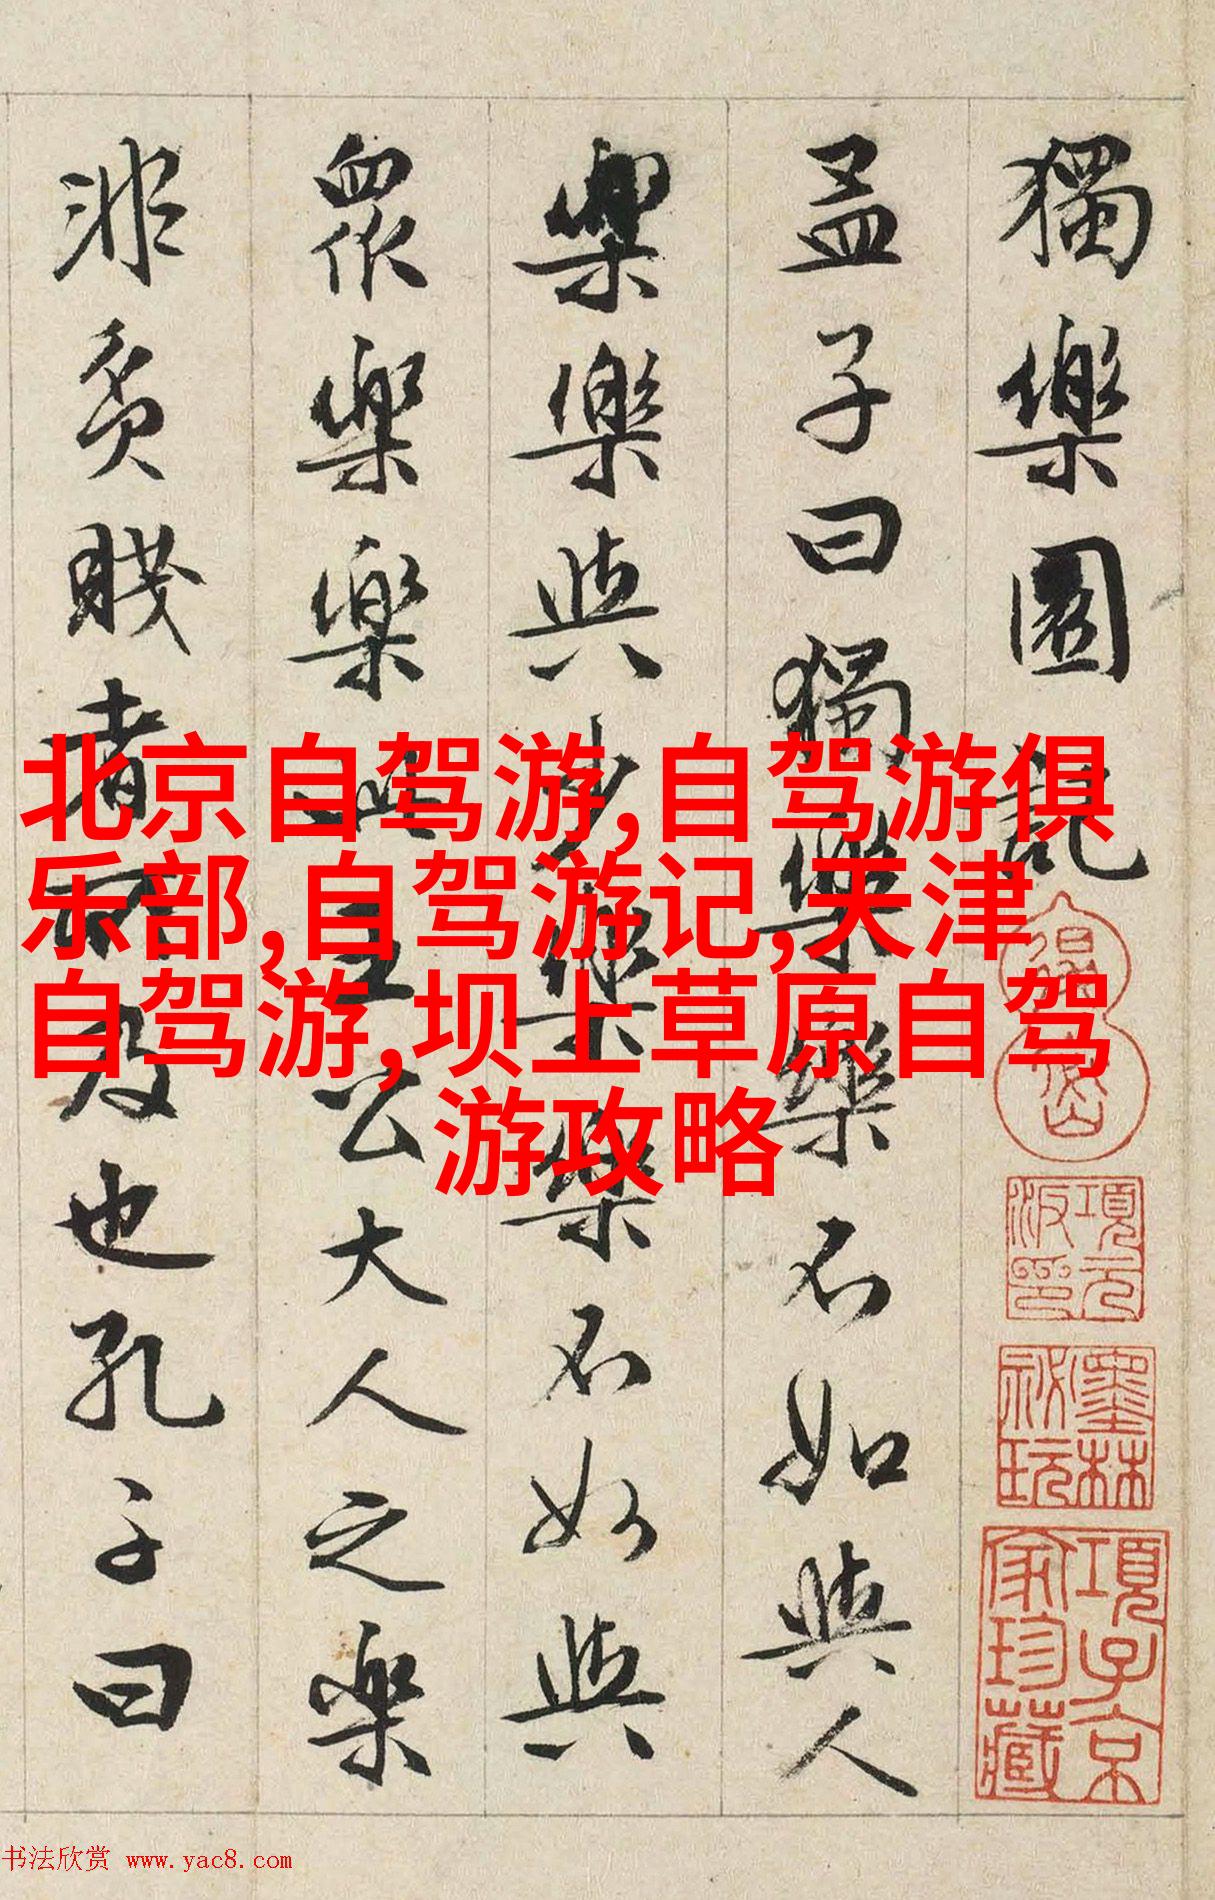 獨樂園記
孟子曰獨樂樂不如與人
樂樂與少樂樂不如與
衆樂樂此王公大人之樂
非貧賤者所及也孔子曰
北京自驾游,自驾游俱
乐部,自驾游记,天津
自驾游,坝上草原自驾
游攻略
項元汴印
墨林秘玩
項子京家珍藏
书法欣赏 www.yac8.com